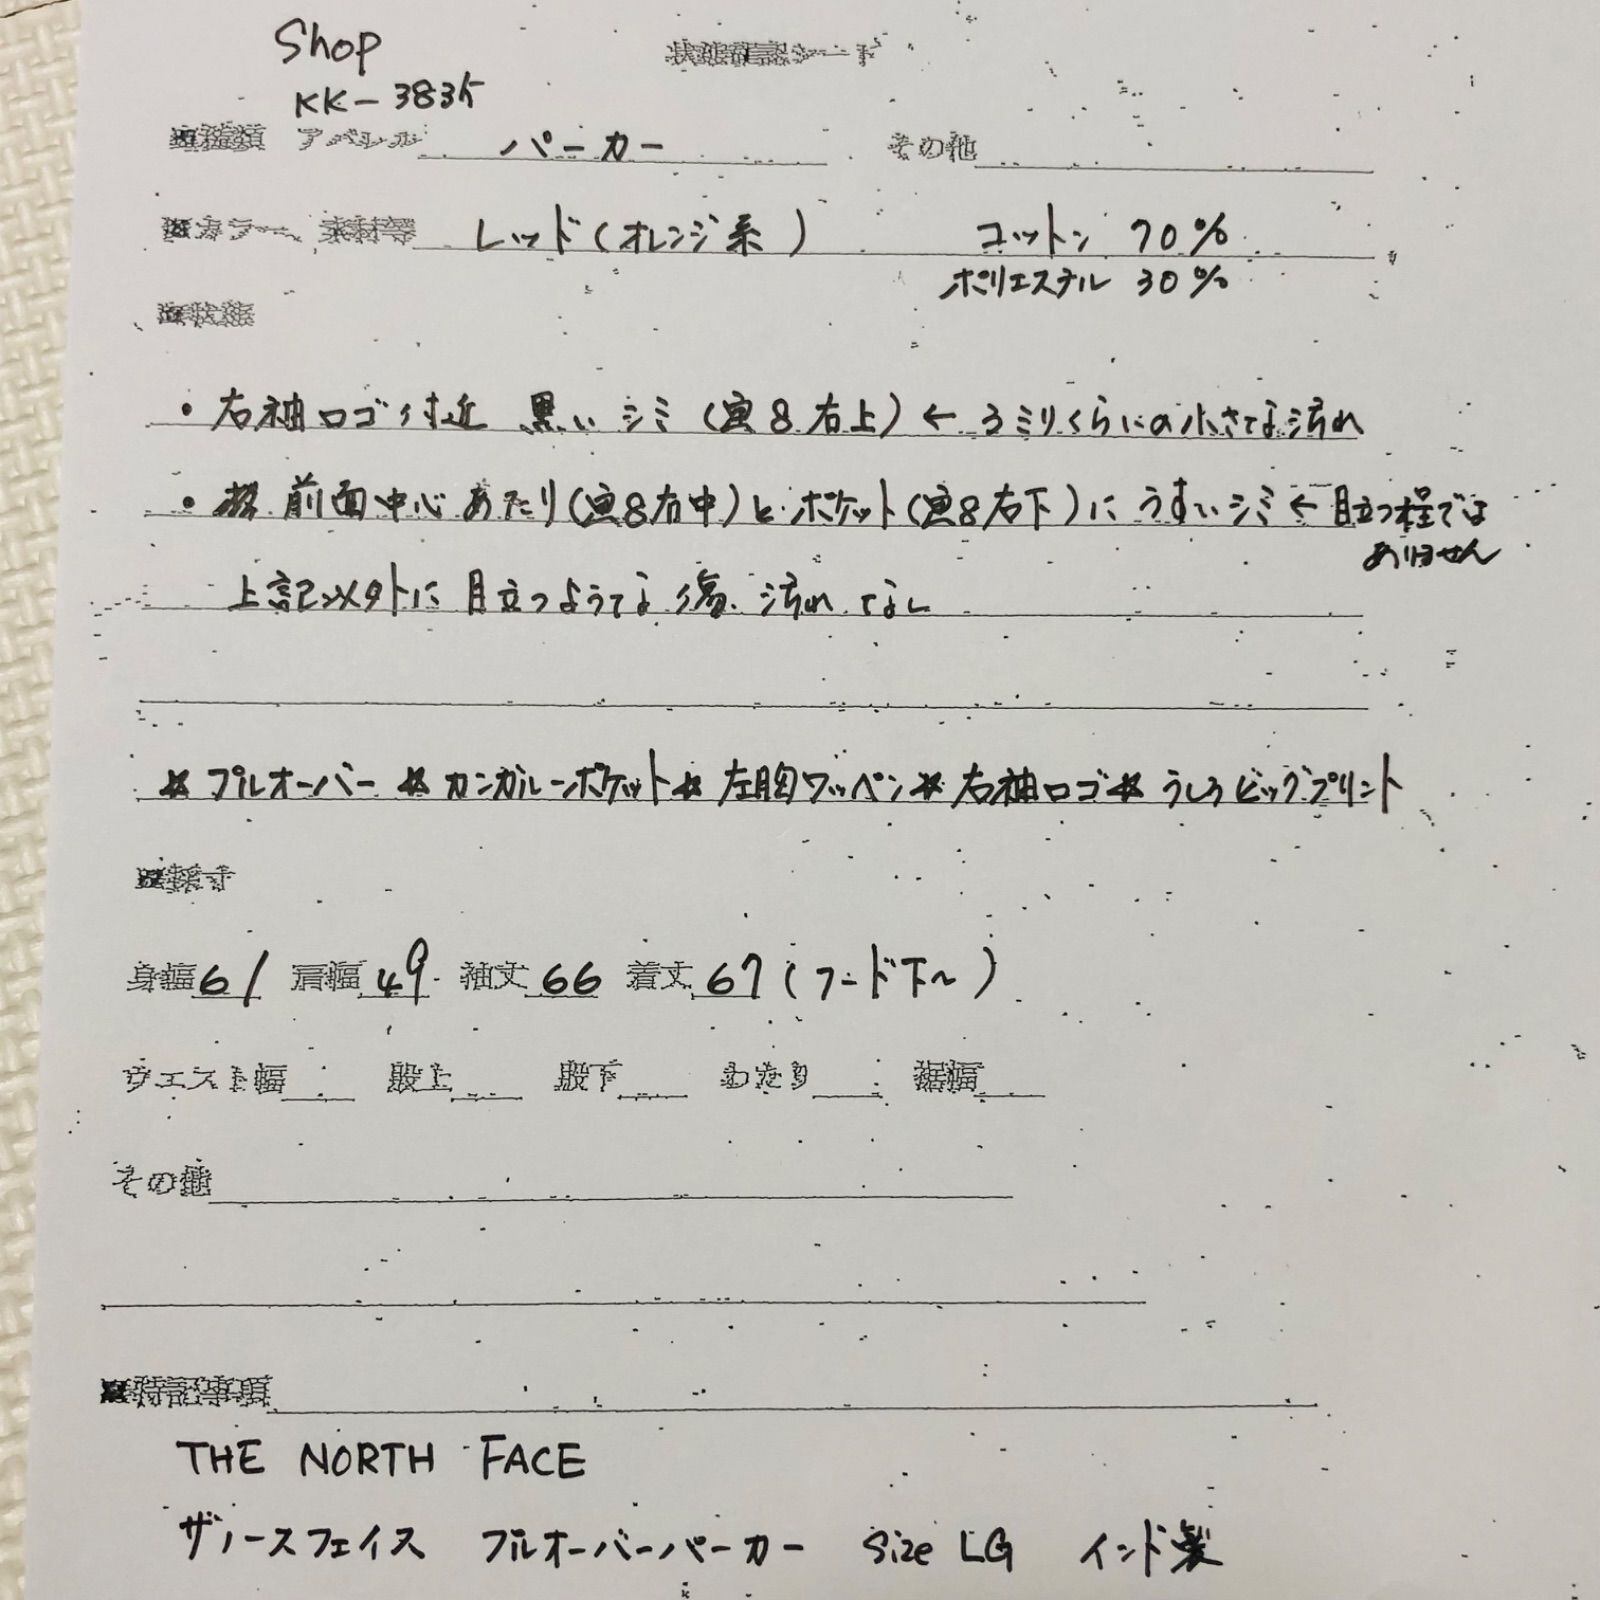 Shop
状態確認シート
KK-3835
■種類 アパレル パーカー その他
■カラー、素材等 レッド(オレンジ系) コットン 70%
ポリエステル 30%
■状態
・右袖ロゴ付近 黒いシミ(画8右上)←3ミリくらいの小さな汚れ
・前面中心あたり(画8右中)とポケット(画8右下)にうすいシミ←目立つ程では
ありません
上記以外に目立つような傷、汚れなし
*プルオーバー*カンガルーポケット*左胸ワッペン*右袖ロゴ*うしろビッグプリント
■採寸
身幅61 肩幅49 袖丈66 着丈67(フード下〜)
ウエスト幅 股上 股下 わたり 裾幅
その他
■特記事項
THE NORTH FACE
ザノースフェイス プルオーバーパーカー Size LG インド製